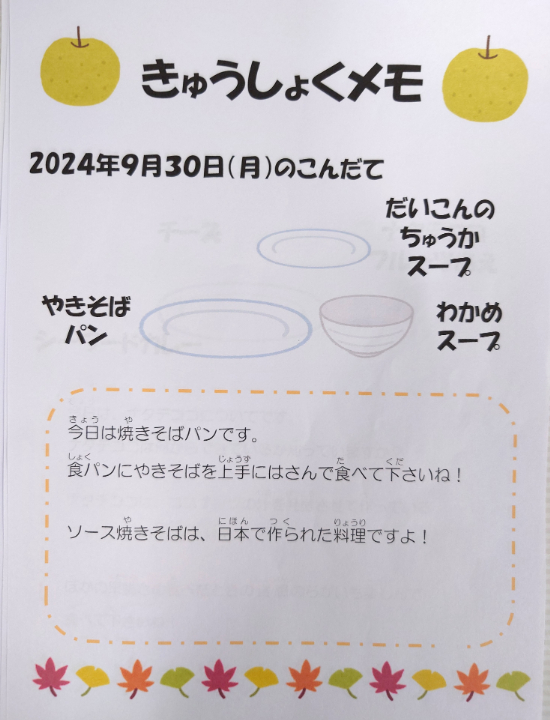 きゅうしょくメモ
2024年9月30日(月)のこんだて
だいこんの
ちゅうか
スープ
やきそば
パン
わかめ
スープ
きょう や
今日は焼きそばパンです。
しょく じょうず た くだ
食パンにやきそばを上手にはさんで食べて下さいね！
や にほん つく りょうり
ソース焼きそばは、日本で作られた料理ですよ！